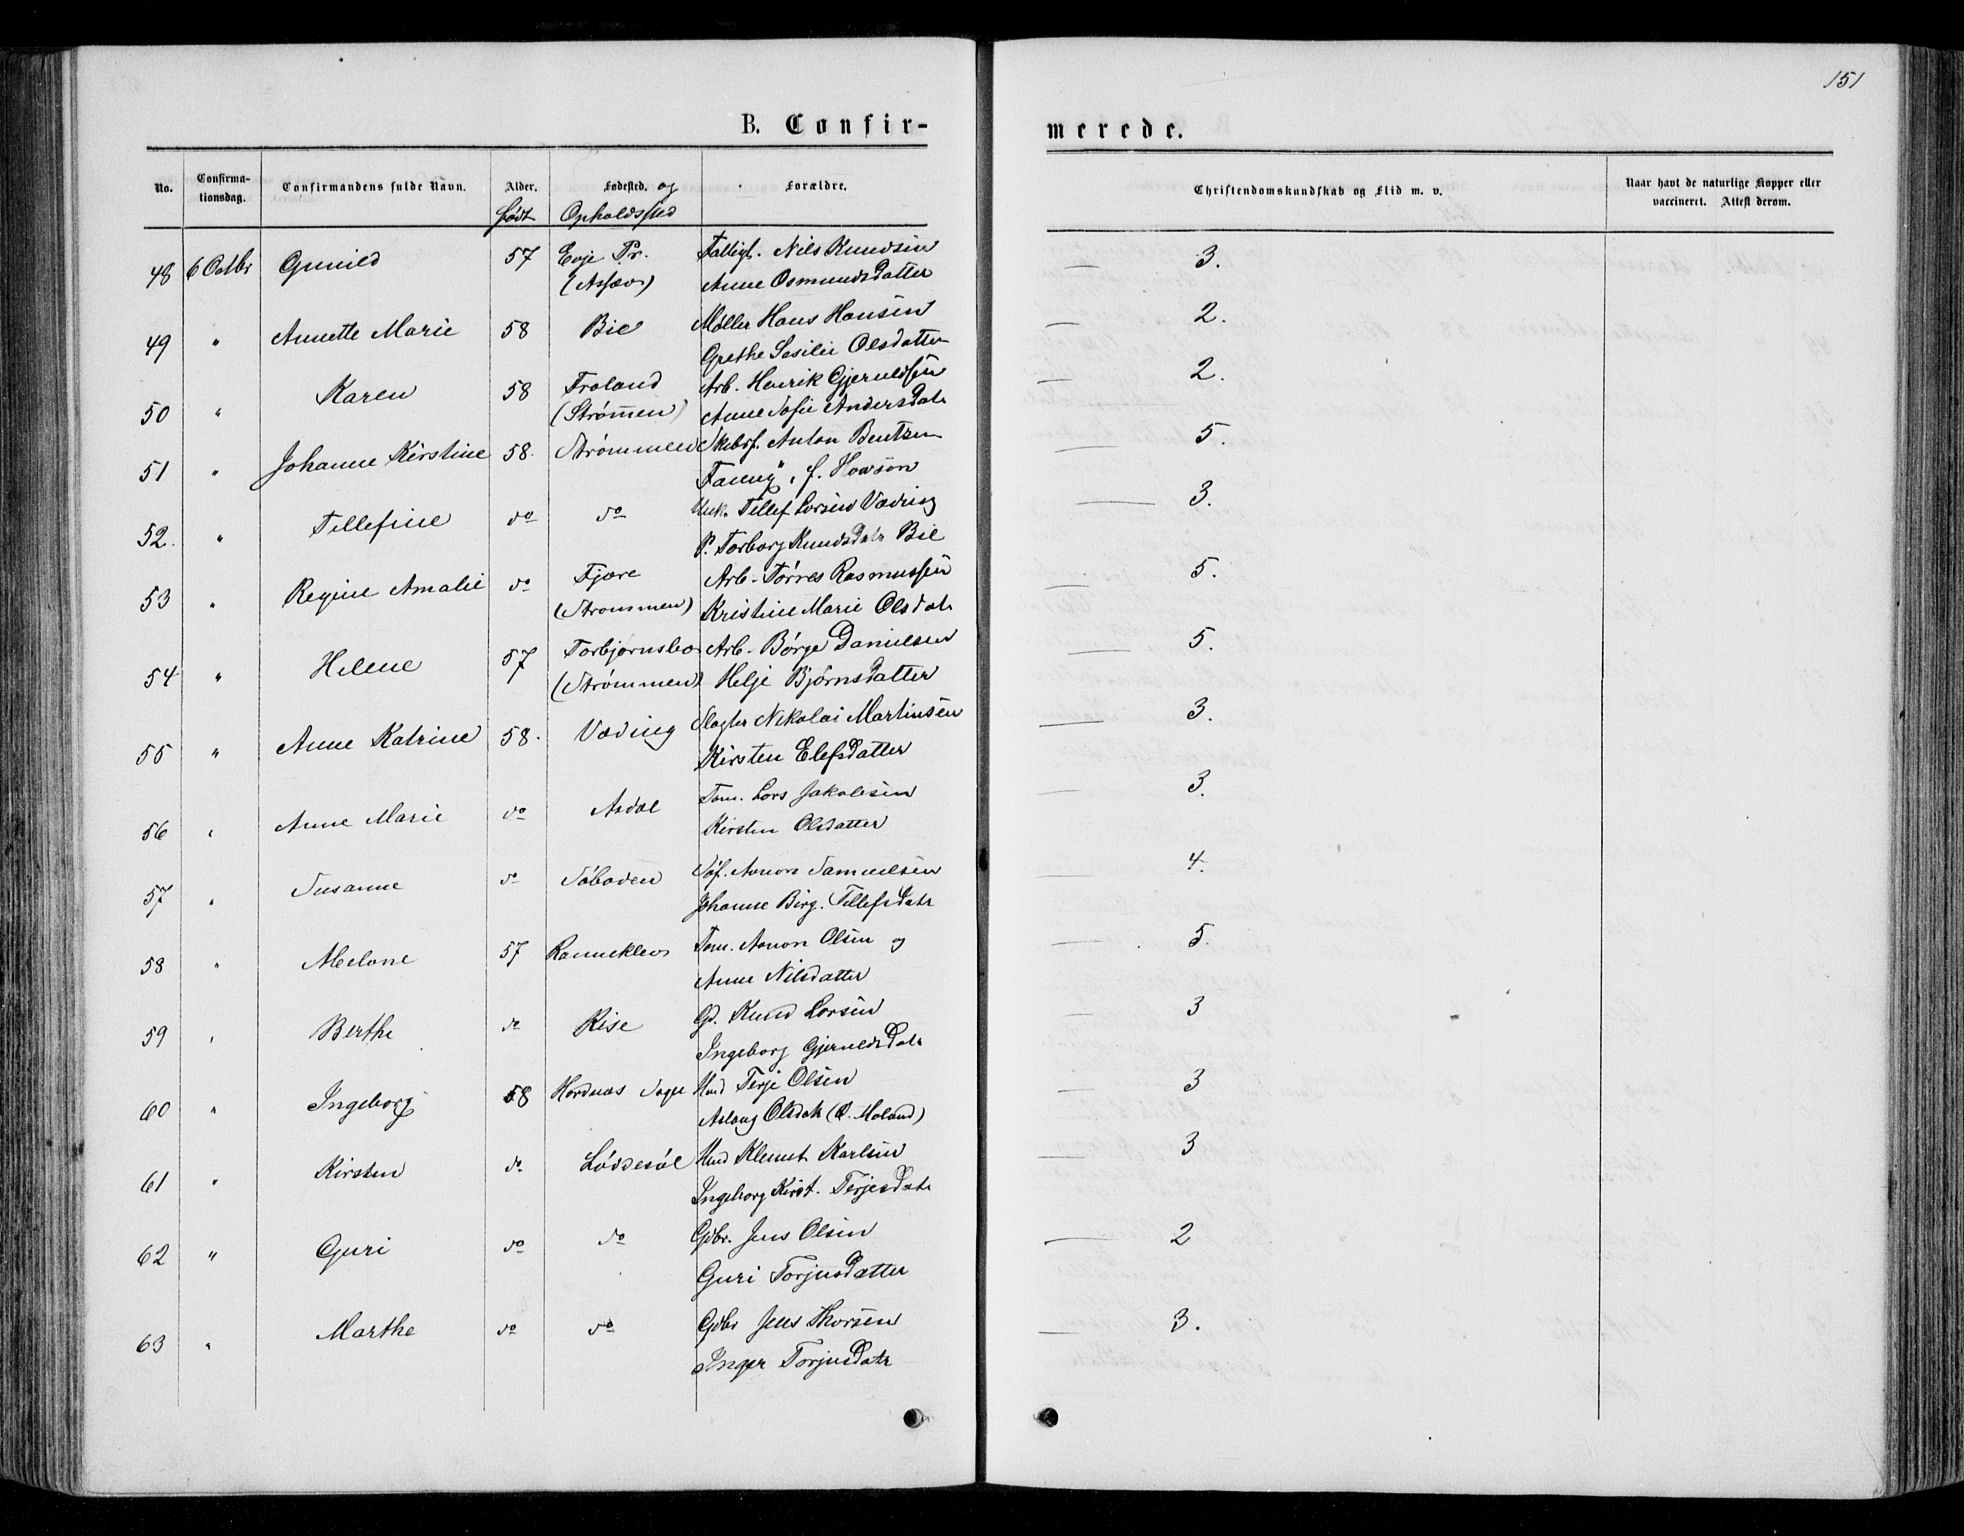 151
B. Confir-
merede.
No.
Confirma-
tionsdag.
Confirmandens fulde Navn.
Alder.
født
Fødested. og
Opholdssted
Forældre.
Christendomskundskab og Flid m. v.
Naar havt de naturlige Kopper eller
vaccineret. Attest derom.
48 6 Octbr Gunild 57 Evje Pr. Nils Knudsen 3.
Anne Osmundsdatter
49 " Annette Marie 58 Bie Møller Hans Hansen 2.
Grethe Olsdatter
50 " Karen 58 Froland Arb. Henrik Gjeruldsen 2.
(Strømmen) Anne Sofie Andersdatr
51 " Johanne Kirstine 58. Strømmen Skibsf. Anton Bentzen 5.
Fanny, f. Howson
52. " Tellefine do do Unk. Tellef Larsen Væding 3.
P. Torborg Knudsdatr Bie
53 " Regine Amalie do Fjære Arb. Tørres Rasmussen 5.
(Strømmen) Kristine Marie Olsdatr
54 " Helene 57 Torbjørnsbo Arb. Børge Danielsen 5.
(Strømmen) Helje Bjørnsdatter
55 " Anne Katrine 58. Væding Slagter Nikolai Martinsen 3.
Kirsten Elefsdatter
56 " Anne Marie do Asdal Tøm. Lars Jakobsen 3.
Kirsten Olsdatter
57 " Susanne do Søboden Søf. Aanon Samuelsen 4.
Johanne Birg. Tellefsdatr
58 " Abelone 57 Rannekleo Tøm. Aanon Olsen og 5.
Anne Nilsdatter
59 " Berthe do Rise Gd. Knud Larsen 3
Ingeborg Gjeruldsdatr
60 " Ingeborg 58 Hordnæs Sogn Hmd Terje Olsen 3
Aslaug Olsdatr (Ø. Moland)
61 " Kirsten do Løddesøl Hmd Klemet Karlsen 3
Ingeborg Kirst. Terjesdatr
62 " Guri do do Gdbr. Jens Olsen 2
Guri Torjusdatter
63 " Marthe do do Gdbr Jens Thorsen 3.
Inger Torjusdatr